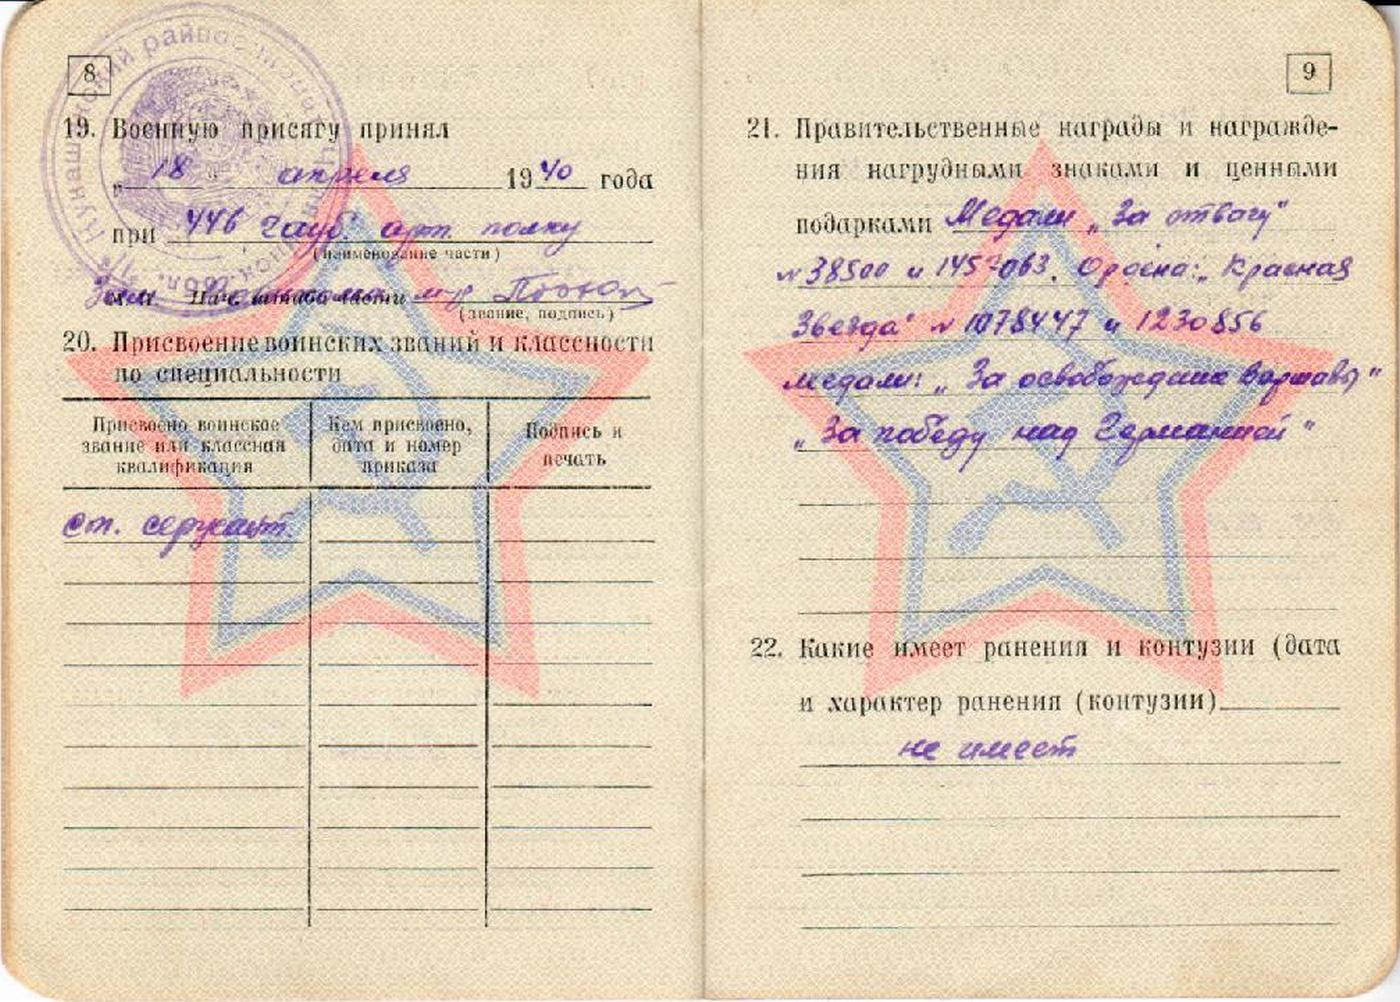 8
19. Военную присягу принял
„ 18 " апреля 1940 года
при 446 гауб. арт. полку
(наименование части)
Зам. Нач. штаба части м-р
(звание, подпись)
20. Присвоение воинских званий и классности
по специальности
Присвоено воинское звание или классная квалификация
Кем присвоено, дата и номер приказа
Подпись и печать
ст. сержант.
9
21. Правительственные награды и награжде-
ния нагрудными знаками и ценными
подарками Медали „За отвагу"
№38500 и 1457063. Ордена: „Красная
Звезда" № 1078447 и 1230856
медали: „За освобождение Варшавы"
„За победу над Германией"
22. Какие имеет ранения и контузии (дата
и характер ранения (контузии)
не имеет